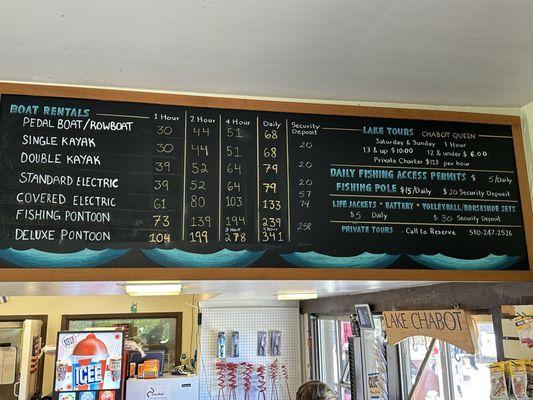 BOAT RENTALS 1 Hour 2 Hour 4 Hour Daily Security Deposit
PEDAL BOAT/ROWBOAT 30 44 51 68 20
SINGLE KAYAK 30 44 51 68
DOUBLE KAYAK 39 52 64 79 20
STANDARD ELECTRIC 39 52 64 79 20
COVERED ELECTRIC 61 80 103 133 57
FISHING PONTOON 73 139 194 239 74
DELUXE PONTOON 104 199 278 341 258
LAKE TOURS CHABOT QUEEN
Saturday & Sunday 1 Hour
13 & up $10.00 12 & under $6.00
Private Charter $120 per hour
DAILY FISHING ACCESS PERMITS $5/Daily
FISHING POLE $15/Daily $20 Security Deposit
LIFE JACKETS * BATTERY * VOLLEYBALL/HORSESHOE SETS
$5 Daily $30 Security Deposit
PRIVATE TOURS Call to Reserve 510-247-2526
LAKE CHABOT
ICEE